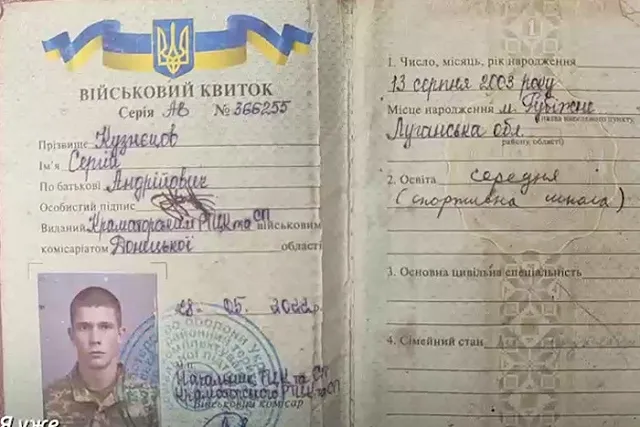 ВІЙСЬКОВИЙ КВИТОК
Серія АВ № 366255
Прізвище Кузнєцов
Ім'я Сергій
По батькові Андрійович
Особистий підпис
Виданий Краматорським РТЦК та СП військовим
комісаріатом Донецької області
28 05. 2022р
Начальник РТЦК та СП
Краматорського РТЦК та СП
Військовий комісар
Я уже
1
1. Число, місяць, рік народження
13 серпня 2003 року
Місце народження м. Рубіжне
(назва населеного пункту,
Луганська обл.
району, області)
2. Освіта середня
(спортивна школа)
3. Основна цивільна спеціальність
4. Сімейний стан